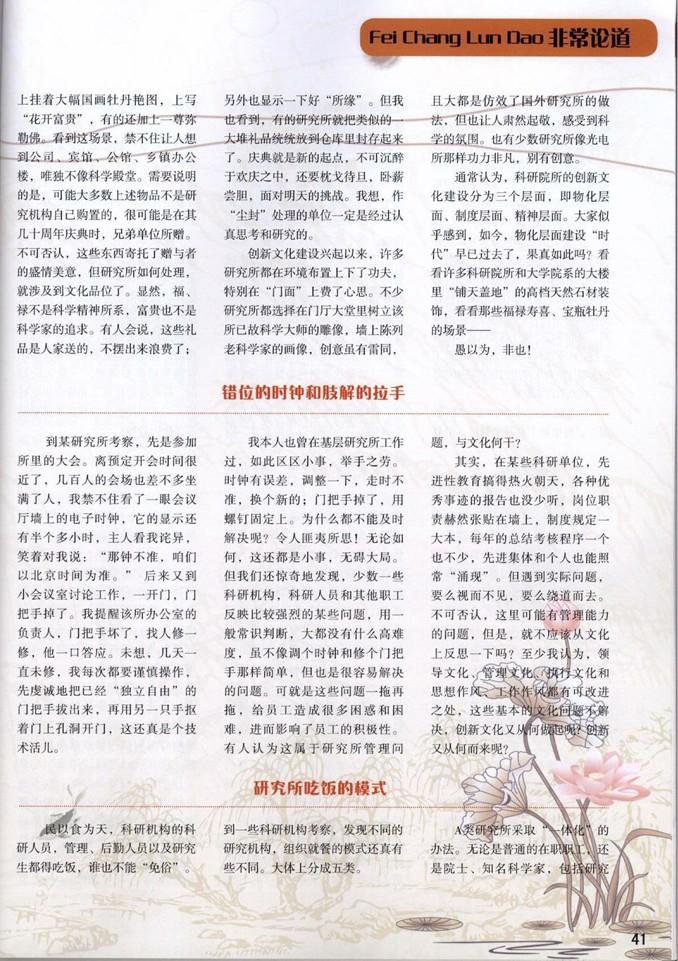 Fei Chang Lun Dao 非常论道
上挂着大幅国画牡丹艳图，上写
“花开富贵”，有的还加上一尊弥
勒佛。看到这场景，禁不住让人想
到公司、宾馆、公馆、乡镇办公
楼，唯独不像科学殿堂。需要说明
的是，可能大多数上述物品不是研
究机构自己购置的，很可能是在其
几十周年庆典时，兄弟单位所赠。
不可否认，这些东西寄托了赠与者
的盛情美意，但研究所如何处理，
就涉及到文化品位了。显然，福、
禄不是科学精神所系，富贵也不是
科学家的追求。有人会说，这些礼
品是人家送的，不摆出来浪费了；
另外也显示一下好“所缘”。但我
也看到，有的研究所就把类似的一
大堆礼品统统放到仓库里封存起来
了。庆典就是新的起点，不可沉醉
于欢庆之中，还要枕戈待旦，卧薪
尝胆，面对明天的挑战。我想，作
“尘封”处理的单位一定是经过认
真思考和研究的。
创新文化建设兴起以来，许多
研究所都在环境布置上下了功夫，
特别在“门面”上费了心思。不少
研究所都选择在门厅大堂里树立该
所已故科学大师的雕像，墙上陈列
老科学家的画像，创意虽有雷同，
且大都是仿效了国外研究所的做
法，但也让人肃然起敬，感受到科
学的氛围。也有少数研究所像光电
所那样功力非凡，别有创意。
通常认为，科研院所的创新文
化建设分为三个层面，即物化层
面、制度层面、精神层面。大家似
乎感到，如今，物化层面建设“时
代”早已过去了，果真如此吗？看
看许多科研院所和大学院系的大楼
里“铺天盖地”的高档天然石材装
饰，看看那些福禄寿喜、宝瓶牡丹
的场景——
愚以为，非也！
错位的时钟和肢解的拉手
到某研究所考察，先是参加
所里的大会。离预定开会时间很
近了，几百人的会场也差不多坐
满了人，我禁不住看了一眼会议
厅墙上的电子时钟，它的显示还
有半个多小时，主人看我诧异，
笑着对我说：“那钟不准，咱们
以北京时间为准。” 后来又到
小会议室讨论工作，一开门，门
把手掉了。我提醒该所办公室的
负责人，门把手坏了，找人修一
修，他一口答应。未想，几天一
直未修，我每次都要谨慎操作，
先虔诚地把已经“独立自由”的
门把手拔出来，再用另一只手抠
着门上孔洞开门，这还真是个技
术活儿。
我本人也曾在基层研究所工作
过，如此区区小事，举手之劳。
时钟有误差，调整一下，走时不
准，换个新的；门把手掉了，用
螺钉固定上。为什么都不能及时
解决呢？令人匪夷所思！无论如
何，这还都是小事，无碍大局。
但我们还惊奇地发现，少数一些
科研机构，科研人员和其他职工
反映比较强烈的某些问题，用一
般常识判断，大都没有什么高难
度，虽不像调个时钟和修个门把
手那样简单，但也是很容易解决
的问题。可就是这些问题一拖再
拖，给员工造成很多困惑和困
难，进而影响了员工的积极性。
有人认为这属于研究所管理问
题，与文化何干？
其实，在某些科研单位，先
进性教育搞得热火朝天，各种优
秀事迹的报告也没少听，岗位职
责赫然张贴在墙上，制度规定一
大本，每年的总结考核程序一个
也不少，先进集体和个人也能照
常“涌现”。但遇到实际问题，
要么视而不见，要么绕道而去。
不可否认，这里可能有管理能力
的问题，但是，就不应该从文化
上反思一下吗？至少我认为，领
导文化、管理文化、执行文化和
思想作风、工作作风都有可改进
之处，这些基本的文化问题不解
决，创新文化又从何做起呢？创新
又从何而来呢？
研究所吃饭的模式
民以食为天，科研机构的科
研人员，管理、后勤人员以及研究
生都得吃饭，谁也不能“免俗”。
到一些科研机构考察，发现不同的
研究机构，组织就餐的模式还真有
些不同。大体上分成五类。
A类研究所采取“一体化”的
办法。无论是普通的在职职工，还
是院士、知名科学家，包括研究
41